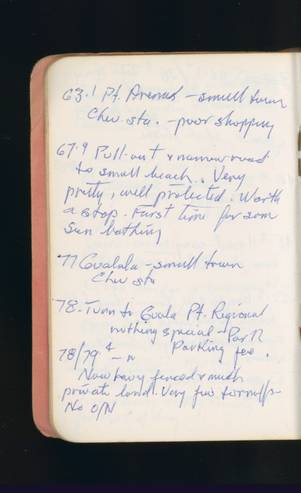 63.1 Pt. Arenas - small town
Chev. sta. - poor shopping
67.9 Pull-out & narrow road
to small beach. Very
pretty, well protected. Worth
a stop. First time for some
Sun bathing
77 Gualala - small town
Chev sta
78. Turn to Guala Pt. Regional
nothing special - Par
Parking fee.
78/79
Now heavy fenced & much
private land. Very few turnoffs
No O/N